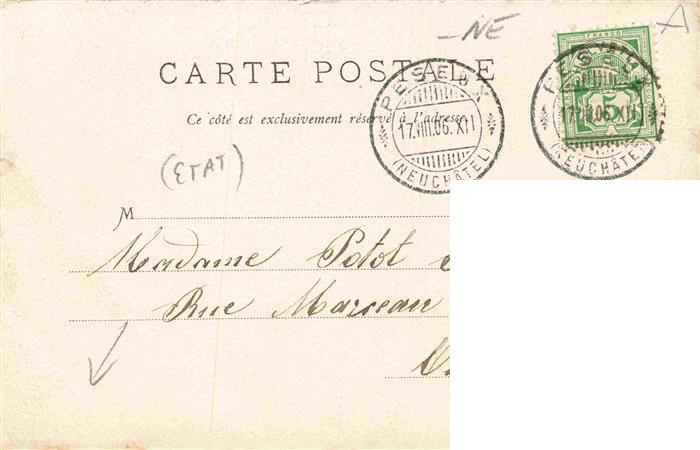 A
– NE
FRANCO
HELVETIA
5
CARTE POSTALE
PESEUX
17.III.06.XII
(NEUCHÂTEL)
PESEUX
17.III.06.XII
(NEUCHÂTEL)
Ce côté est exclusivement réservé à l'adresse
(ETAT)
M
Madame Potot
Rue Marceau